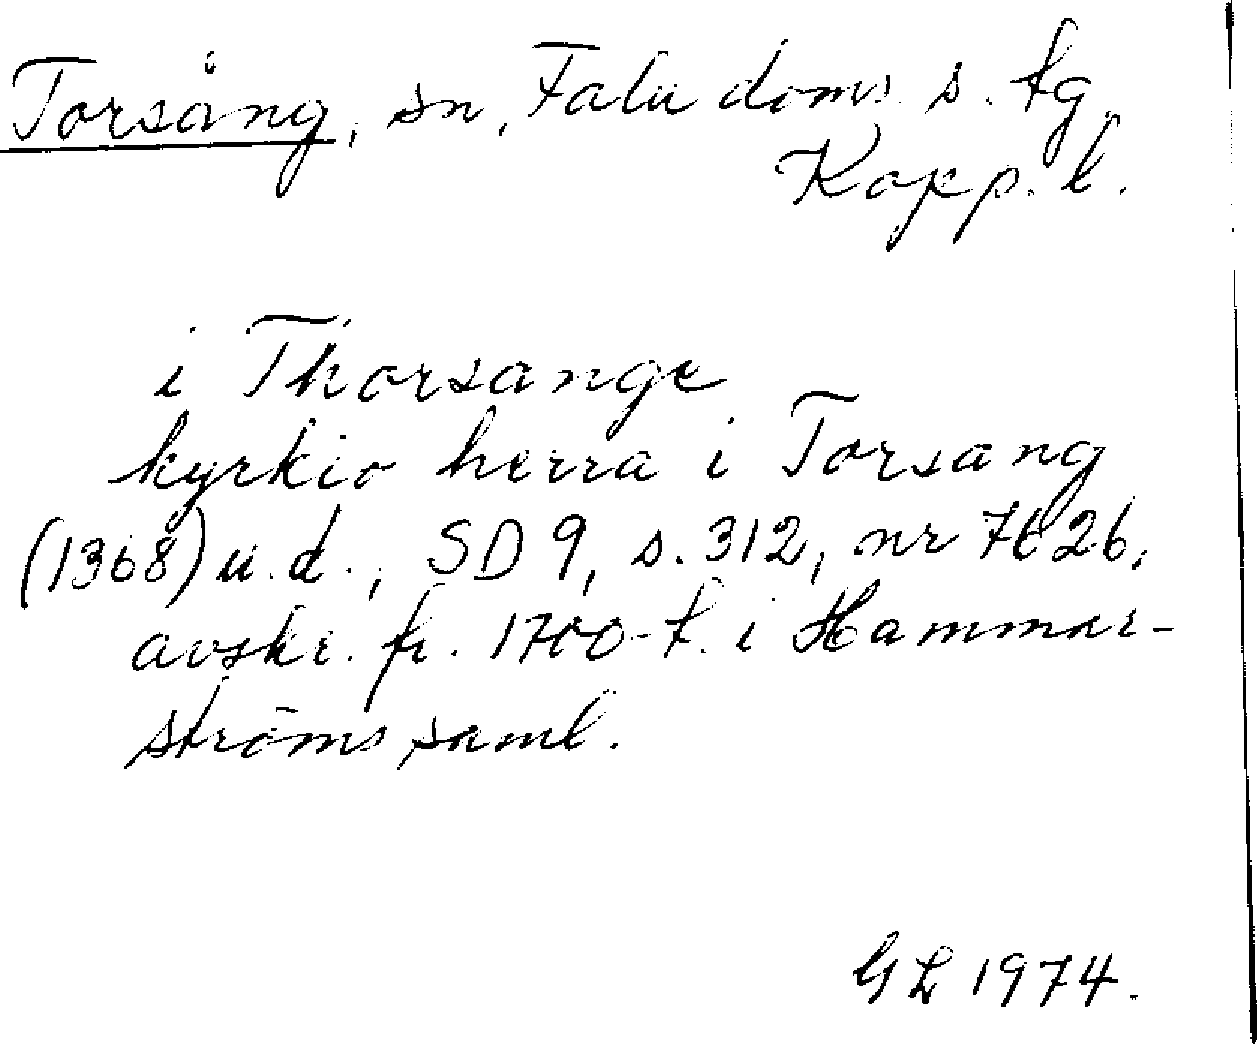 Torsång, sn, Falu doms. s. tg,
Kopp. l.
i Thorsange
kyrkio herra i Torsang
(1368) u.d., SD 9, s. 312, nr 7626,
avskr. fr. 1700-t. i Hammar-
ströms saml.
GL 1974.